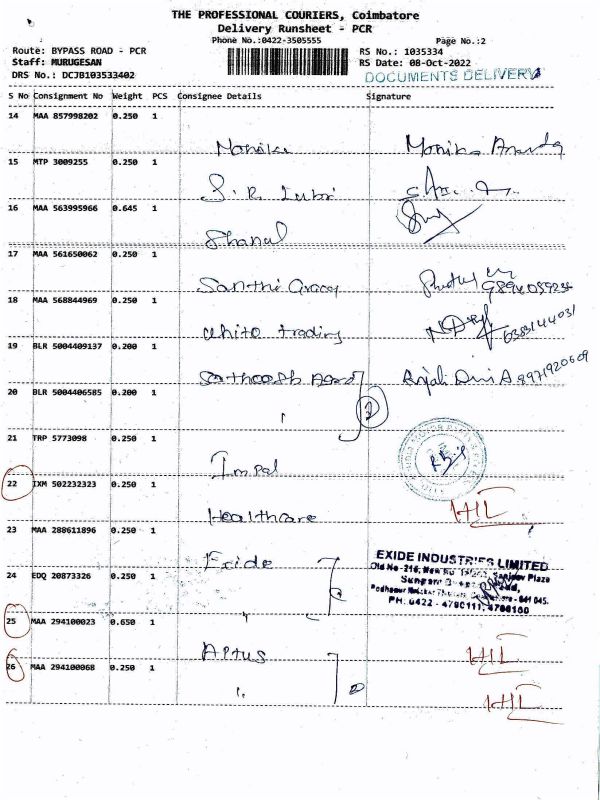 THE PROFESSIONAL COURIERS, Coimbatore
Delivery Runsheet - PCR
Phone No.:0422-3505555 Page No.:2
Route: BYPASS ROAD - PCR RS No.: 1035334
Staff: MURUGESAN RS Date: 08-Oct-2022
DRS No.: DCJB103533402 DOCUMENTS DELIVERY
S No Consignment No Weight PCS Consignee Details Signature
14 MAA 857998202 0.250 1
Monika Monika
15 MTP 3009255 0.250 1
S. R.
16 MAA 563995966 0.645 1
17 MAA 561650062 0.250 1
Santhi Gracy
18 MAA 568844969 0.250 1
white trading
19 BLR 5004409137 0.200 1
Anjali Devi A 8971920609
20 BLR 5004406585 0.200 1
" 2
21 TRP 5773098 0.250 1
Impal
22 IXM 502232323 0.250 1
Healthcare HIL
23 MAA 288611896 0.250 1
Exide EXIDE INDUSTRIES LIMITED
24 EDQ 20873326 0.250 1
" PH: 0422 - 4790111, 4708100
25 MAA 294100023 0.650 1
Aptus HIL
26 MAA 294100068 0.250 1
" 2 HIL